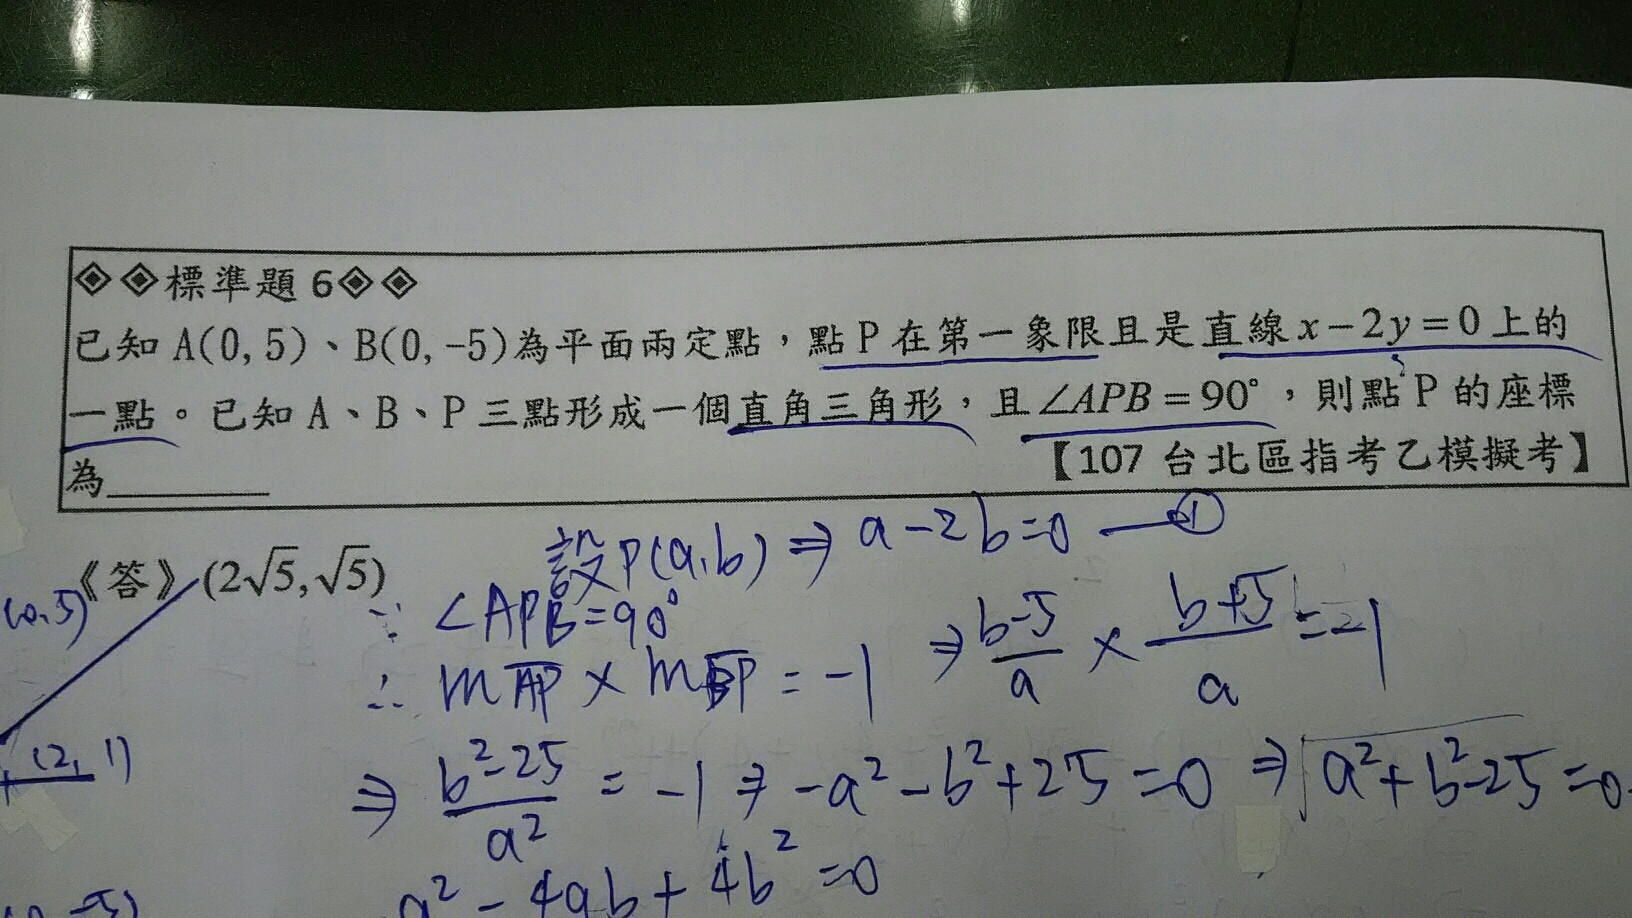 ◈◈標準題 6◈◈
已知 A(0, 5)、B(0, -5)為平面兩定點，點 P 在第一象限且是直線 x-2y=0 上的
一點。已知 A、B、P 三點形成一個直角三角形，且∠APB=90°，則點 P 的座標
為________
【107 台北區指考乙模擬考】
設P(a,b) ⇒ a-2b=0 —①
《答》(2√5,√5)
(0,5)
∵ ∠APB=90°
∴ m AP × m BP = -1 ⇒ (b-5)/a × (b+5)/a = -1
(2,1)
⇒ (b²-25)/a² = -1 ⇒ -a²-b²+25=0 ⇒ a²+b²-25=0
a²-4ab+4b²=0